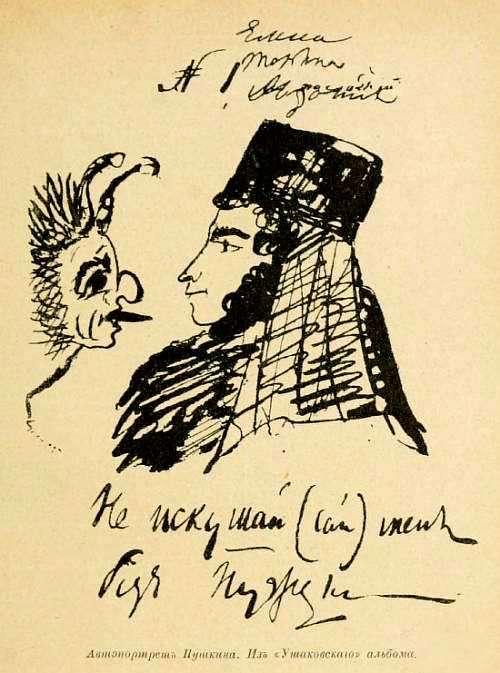 Елена
№ 1
Не искушай (сай) меня
безъ нужды
Автопортретъ Пушкина. Изъ «Ушаковскаго» альбома.